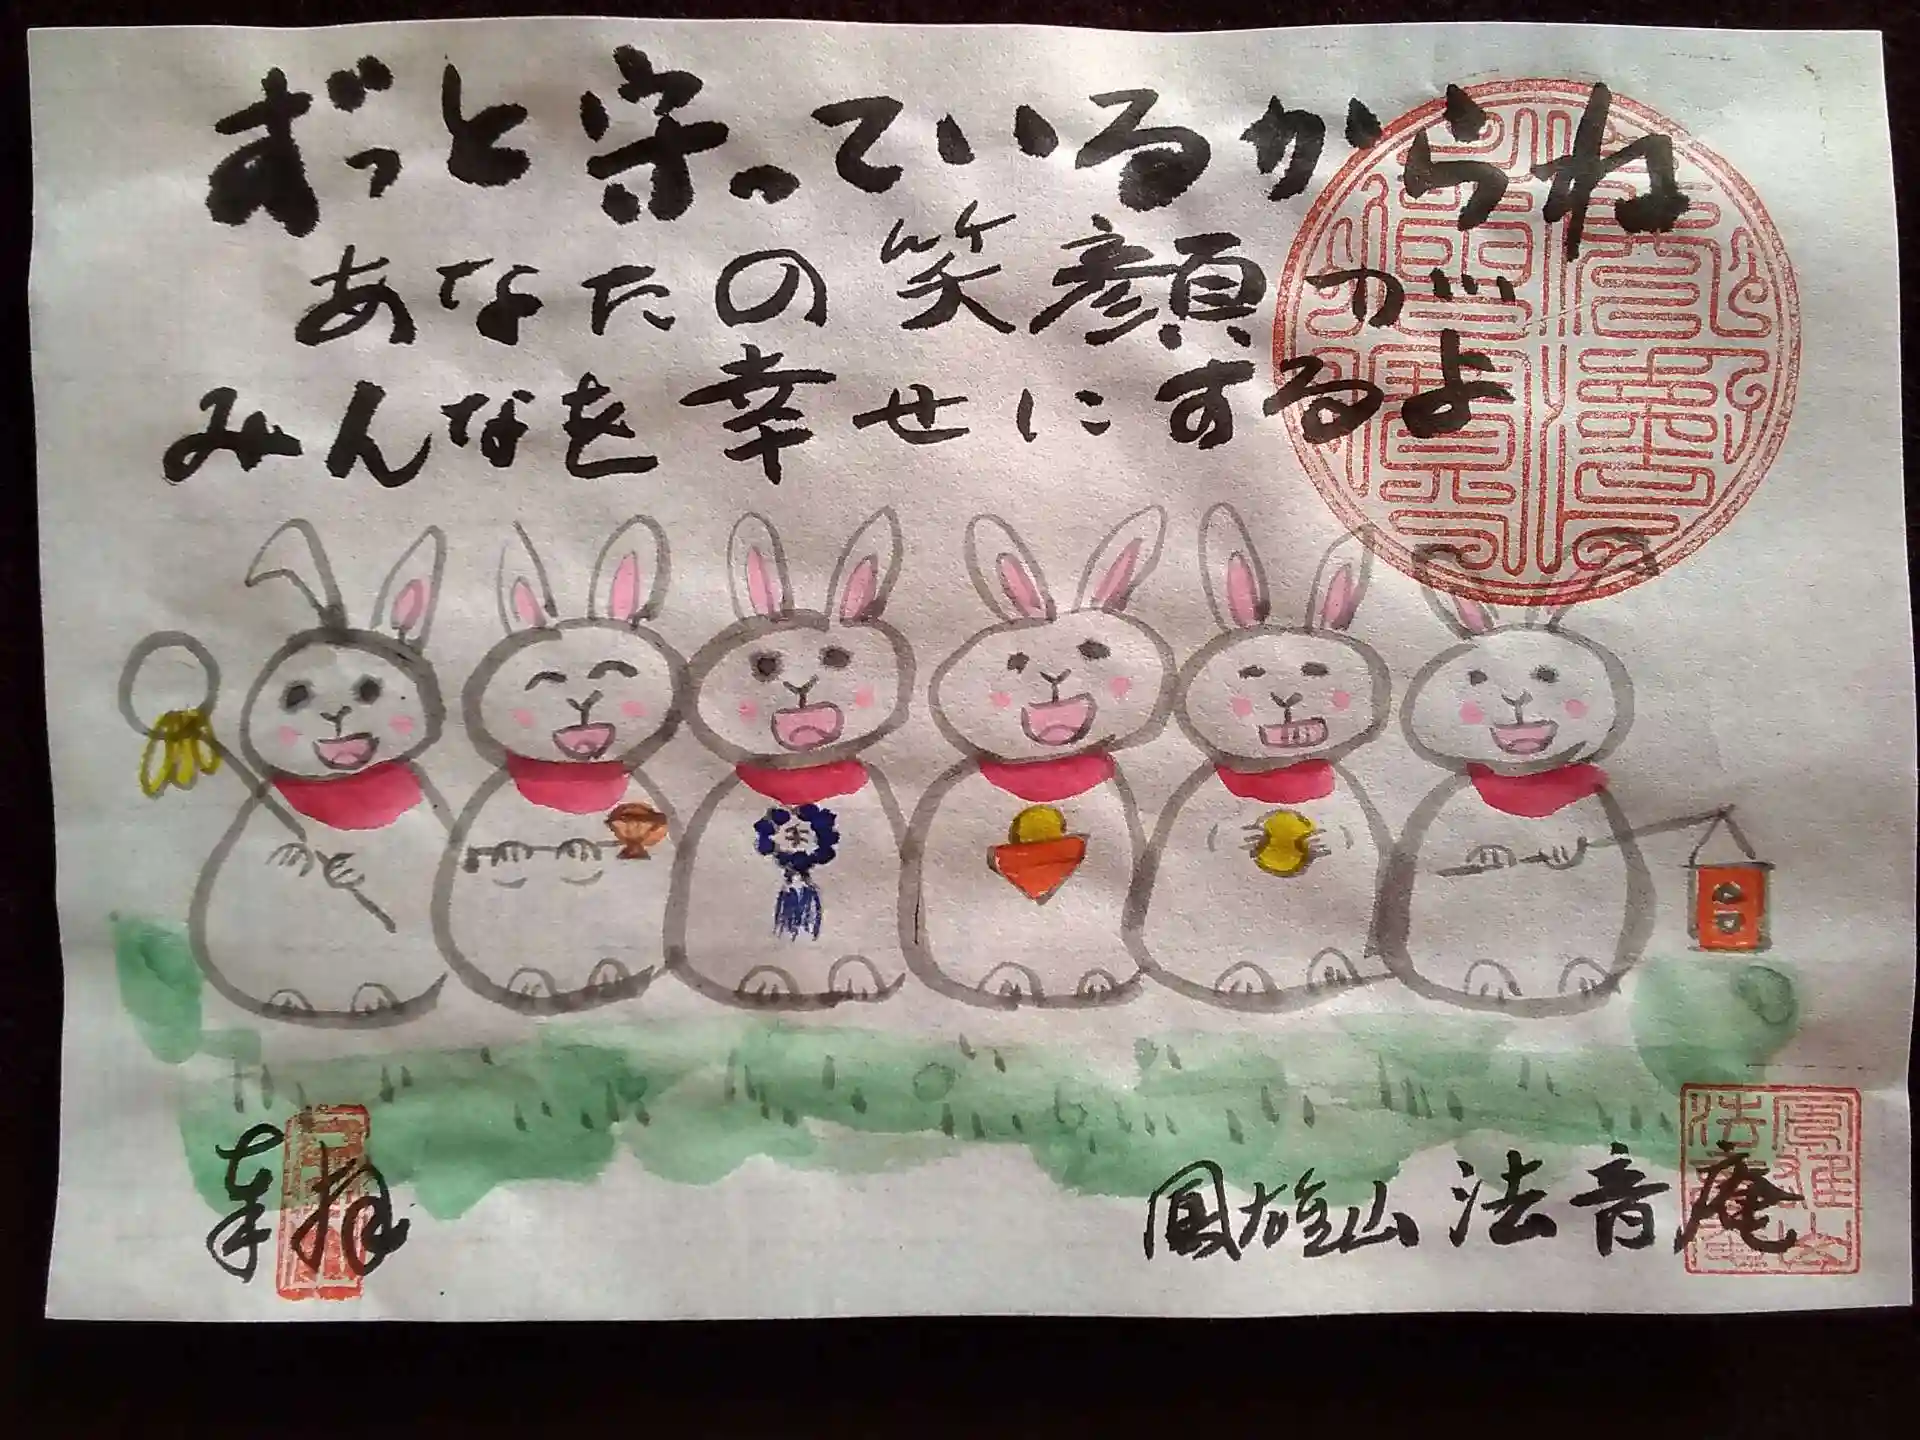 ずっと守っているからね
あなたの笑顔が
みんなを幸せにするよ
奉拝
鳳雄山 法音庵